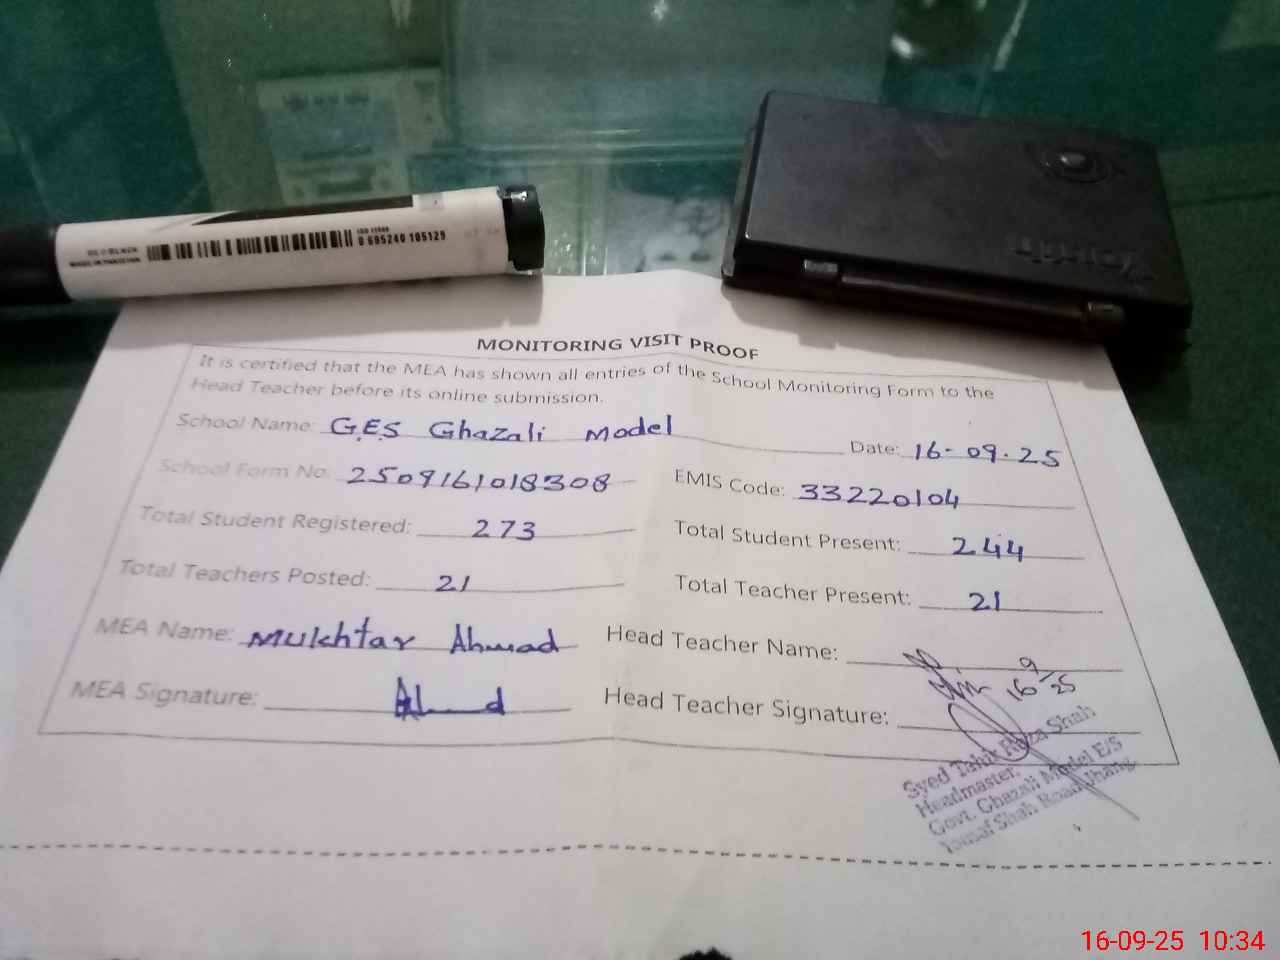 MADE IN PAKISTAN
ISO 11540
8 695240 105129
Youth
MONITORING VISIT PROOF
It is certified that the MEA has shown all entries of the School Monitoring Form to the
Head Teacher before its online submission.
School Name: G.E.S Ghazali Model Date: 16-09.25
School Form No: 2509161018308 EMIS Code: 33220104
Total Student Registered: 273 Total Student Present: 244
Total Teachers Posted: 21 Total Teacher Present: 21
MEA Name: Mukhtar Ahmad Head Teacher Name:
MEA Signature: Ahmad Head Teacher Signature:
16/9/25
Syed Tahir Raza Shah
Headmaster,
Govt. Ghazali Model E/S
Yousaf Shah Road Jhang.
16-09-25 10:34